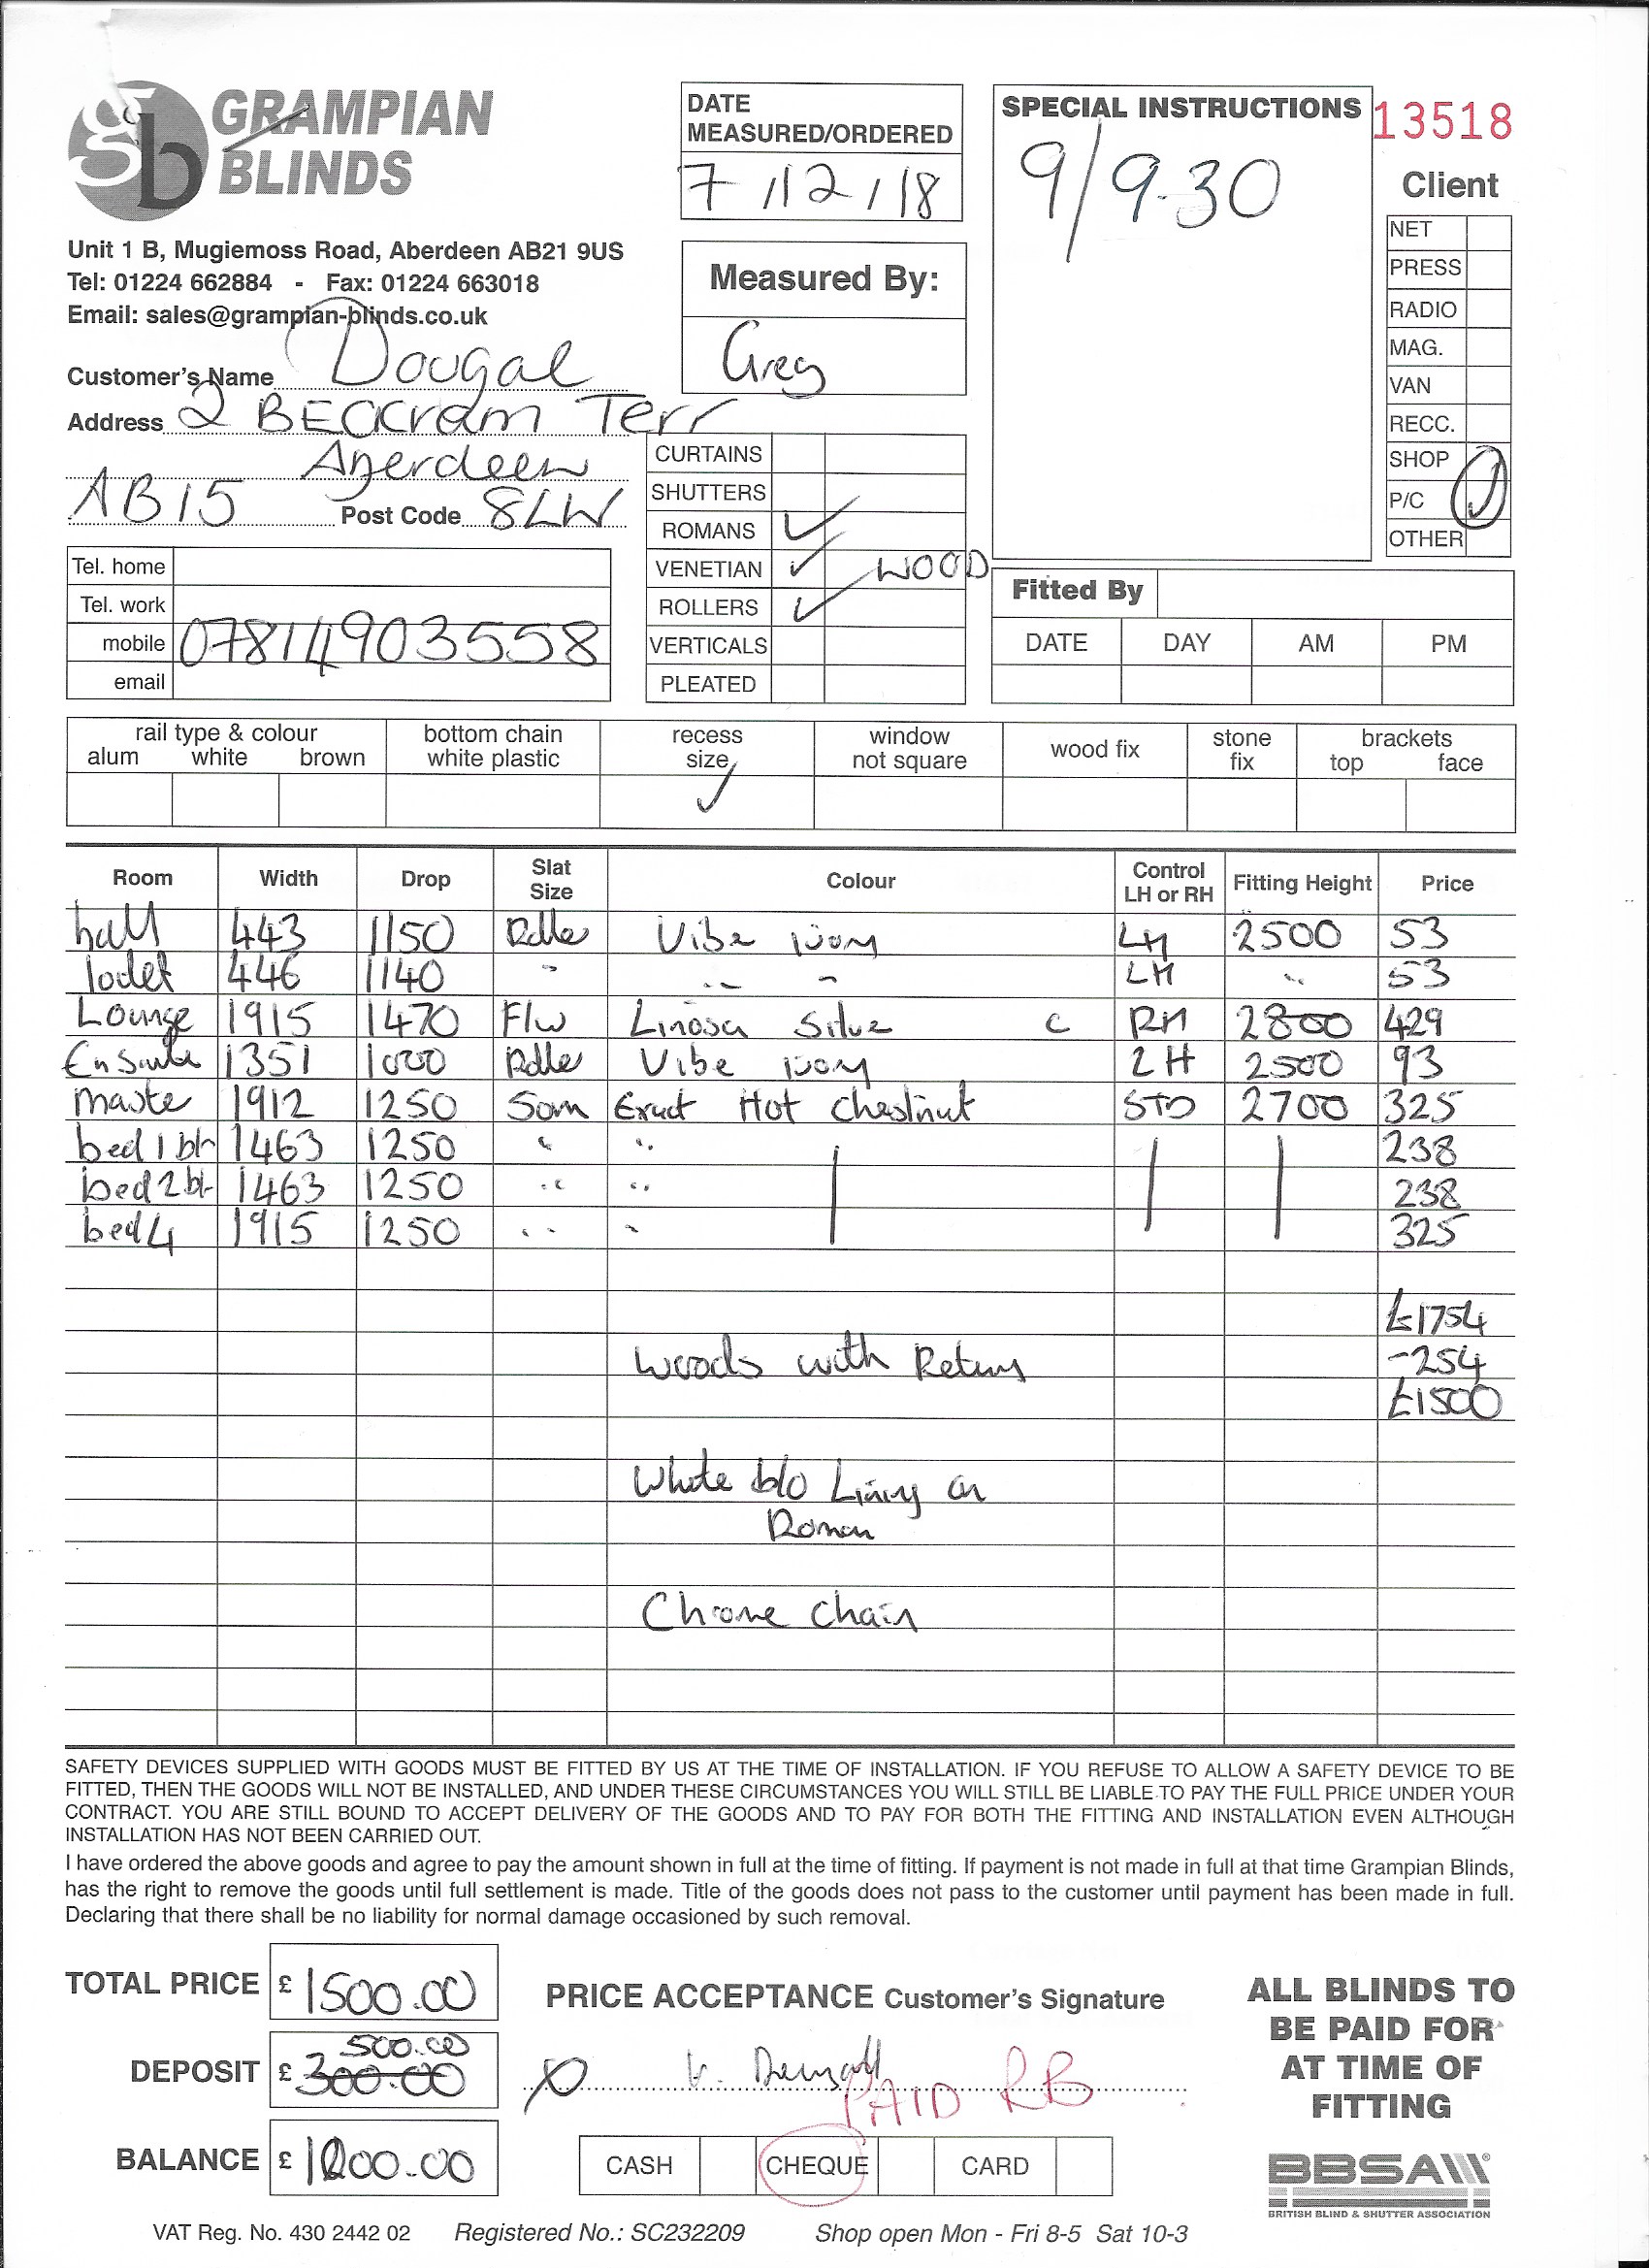 gb GRAMPIAN
BLINDS
Unit 1 B, Mugiemoss Road, Aberdeen AB21 9US
Tel: 01224 662884 - Fax: 01224 663018
Email: sales@grampian-blinds.co.uk
DATE
MEASURED/ORDERED
7 / 12 / 18
Measured By:
Greg
SPECIAL INSTRUCTIONS
9/9.30
13518
Client
NET
PRESS
RADIO
MAG.
VAN
RECC.
SHOP
P/C
OTHER
Customer's Name Dougal
Address 2 Terr
Aberdeen
AB15 Post Code 8LW
Tel. home
Tel. work
mobile 07814903558
email
CURTAINS
SHUTTERS
ROMANS ✓
VENETIAN ✓ WOOD
ROLLERS ✓
VERTICALS
PLEATED
Fitted By
DATE DAY AM PM
rail type & colour
alum white brown
bottom chain
white plastic
recess
size ✓
window
not square
wood fix
stone
fix
brackets
top face
Room Width Drop Slat Size Colour Control LH or RH Fitting Height Price
hall 443 1150 Roller Vibe ivory LH 2500 53
toilet 446 1140 " " " LH " 53
Lounge 1915 1470 F/W Linosa Silver C RH 2800 429
En Suite 1351 1000 Roller Vibe ivory LH 2500 93
Master 1912 1250 50m Hot Chestnut STD 2700 325
bed 1 1463 1250 " " 238
bed 2 1463 1250 " " 238
bed 4 1915 1250 " " 325
£1754
Woods with Returns -254
£1500
White b/o Lining on
Roman
Chrome Chain
SAFETY DEVICES SUPPLIED WITH GOODS MUST BE FITTED BY US AT THE TIME OF INSTALLATION. IF YOU REFUSE TO ALLOW A SAFETY DEVICE TO BE
FITTED, THEN THE GOODS WILL NOT BE INSTALLED, AND UNDER THESE CIRCUMSTANCES YOU WILL STILL BE LIABLE TO PAY THE FULL PRICE UNDER YOUR
CONTRACT. YOU ARE STILL BOUND TO ACCEPT DELIVERY OF THE GOODS AND TO PAY FOR BOTH THE FITTING AND INSTALLATION EVEN ALTHOUGH
INSTALLATION HAS NOT BEEN CARRIED OUT.
I have ordered the above goods and agree to pay the amount shown in full at the time of fitting. If payment is not made in full at that time Grampian Blinds,
has the right to remove the goods until full settlement is made. Title of the goods does not pass to the customer until payment has been made in full.
Declaring that there shall be no liability for normal damage occasioned by such removal.
TOTAL PRICE £ 1500.00
500.00
DEPOSIT £ 300.00
BALANCE £ 1000.00
PRICE ACCEPTANCE Customer's Signature
PAID RB
CASH CHEQUE CARD
ALL BLINDS TO
BE PAID FOR
AT TIME OF
FITTING
BBSA
BRITISH BLIND & SHUTTER ASSOCIATION
VAT Reg. No. 430 2442 02 Registered No.: SC232209 Shop open Mon - Fri 8-5 Sat 10-3